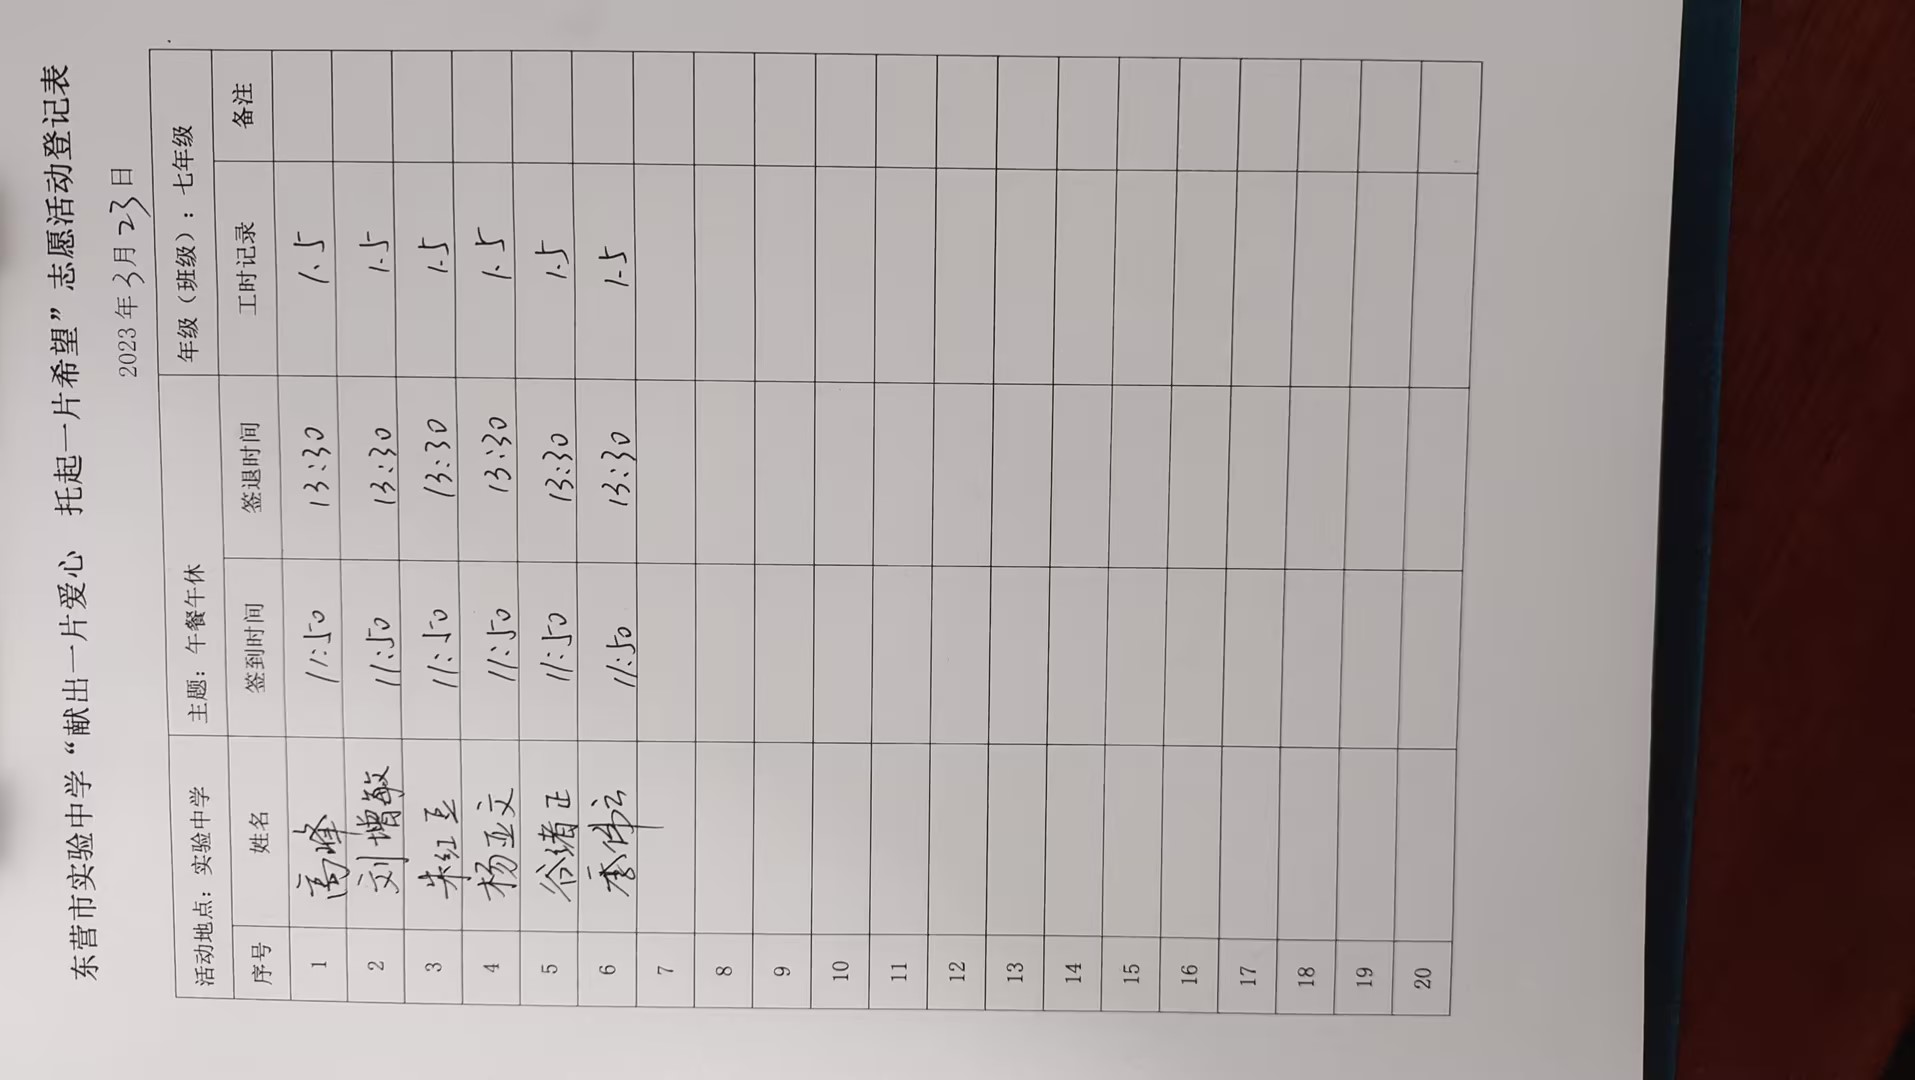 东营市实验中学“献出一片爱心 托起一片希望”志愿活动登记表
2023年3月23日
活动地点：实验中学 主题：午餐午休 年级（班级）：七年级
序号 姓名 签到时间 签退时间 工时记录 备注
1 高峰 11:50 13:30 1.5
2 刘增敏 11:50 13:30 1.5
3 朱红豆 11:50 13:30 1.5
4 杨亚文 11:50 13:30 1.5
5 谷绪正 11:50 13:30 1.5
6 李伟 11:50 13:30 1.5
7
8
9
10
11
12
13
14
15
16
17
18
19
20